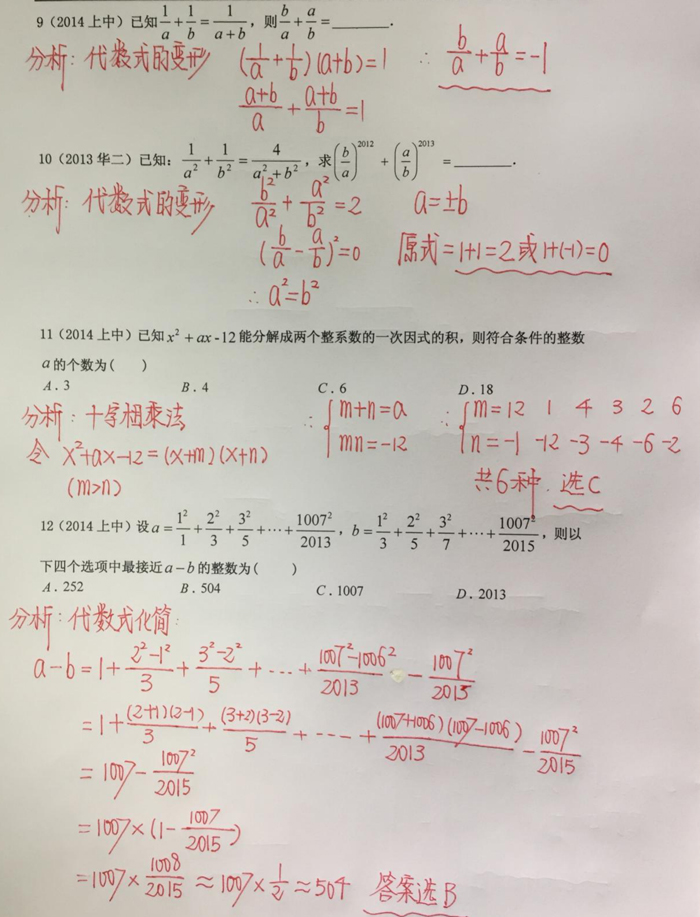 9（2014上中）已知 1/a + 1/b = 1/(a+b)，则 b/a + a/b = ______.
分析：代数式的变形 (1/a + 1/b)(a+b)=1 ∴ b/a + a/b = -1
(a+b)/a + (a+b)/b = 1
10（2013华二）已知：1/a² + 1/b² = 4/(a²+b²)，求(b/a)^2012 + (a/b)^2013 = ______.
分析：代数式的变形 b²/a² + a²/b² = 2 a=±b
(b/a - a/b)²=0 原式=1+1=2或1+(-1)=0
∴ a²=b²
11（2014上中）已知x²+ax-12能分解成两个整系数的一次因式的积，则符合条件的整数
a的个数为( )
A.3 B.4 C.6 D.18
分析：十字相乘法 ∴ { m+n=a ∴ { m=12 1 4 3 2 6
令 x²+ax-12=(x+m)(x+n) mn=-12 n=-1 -12 -3 -4 -6 -2
(m>n) 共6种.选C
12（2014上中）设a= 1²/1 + 2²/3 + 3²/5 +⋯+ 1007²/2013，b= 1²/3 + 2²/5 + 3²/7 +⋯+ 1007²/2015，则以
下四个选项中最接近a-b的整数为( )
A.252 B.504 C.1007 D.2013
分析：代数式化简：
a-b=1+ (2²-1²)/3 + (3²-2²)/5 + ⋯ + (1007²-1006²)/2013 - 1007²/2015
=1+ (2+1)(2-1)/3 + (3+2)(3-2)/5 + ---- + (1007+1006)(1007-1006)/2013 - 1007²/2015
=1007- 1007²/2015
=1007×(1- 1007/2015)
=1007× 1008/2015 ≈1007× 1/2 ≈504 答案选B